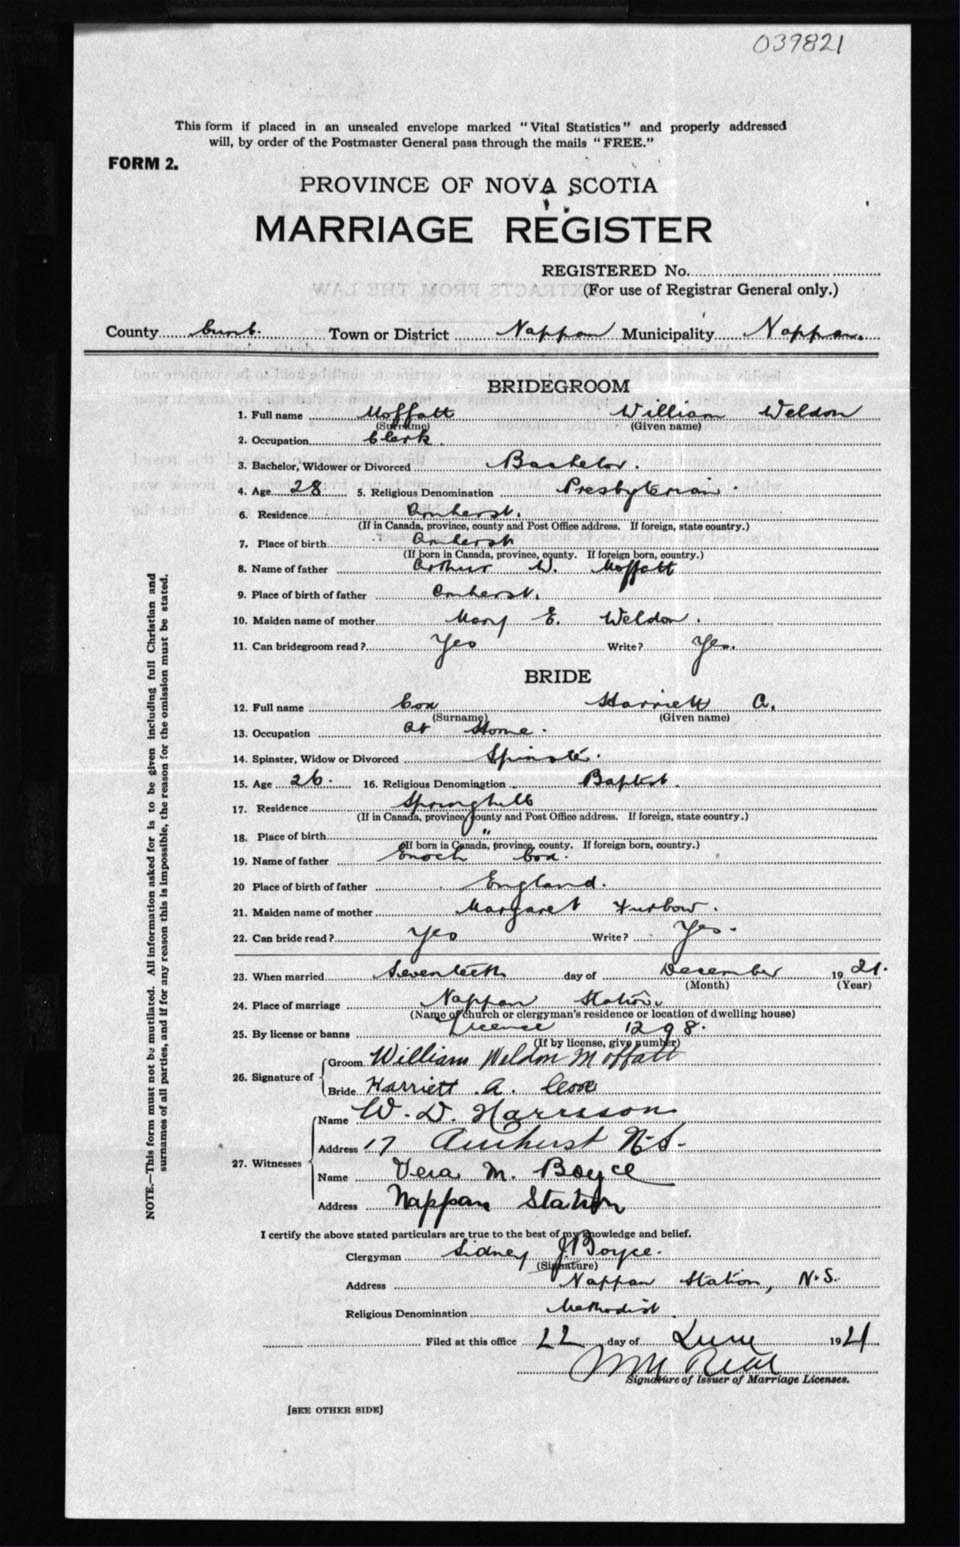 039821
This form if placed in an unsealed envelope marked "Vital Statistics" and properly addressed
will, by order of the Postmaster General pass through the mails "FREE."
FORM 2.
PROVINCE OF NOVA SCOTIA
MARRIAGE REGISTER
REGISTERED No.
(For use of Registrar General only.)
County Cumb. Town or District Nappan Municipality Nappan.
BRIDEGROOM
1. Full name Moffatt William Weldon
(Surname) (Given name)
2. Occupation Clerk.
3. Bachelor, Widower or Divorced Bachelor.
4. Age 28 5. Religious Denomination Presbyterian
6. Residence Amherst.
(If in Canada, province, county and Post Office address. If foreign, state country.)
7. Place of birth Amherst
(If born in Canada, province, county. If foreign born, country.)
8. Name of father Arthur W. Moffatt
9. Place of birth of father Amherst.
10. Maiden name of mother Mary E. Weldon.
11. Can bridegroom read? Yes Write? Yes.
BRIDE
12. Full name Cox Harriett A.
(Surname) (Given name)
13. Occupation At Home.
14. Spinster, Widow or Divorced Spinster.
15. Age 26. 16. Religious Denomination Baptist.
17. Residence Springhill
(If in Canada, province, county and Post Office address. If foreign, state country.)
18. Place of birth "
(If born in Canada, province, county. If foreign born, country.)
19. Name of father Enoch Cox.
20 Place of birth of father England.
21. Maiden name of mother Margaret Furbow.
22. Can bride read? Yes Write? Yes.
23. When married Seventeeth day of December 1921.
(Month) (Year)
24. Place of marriage Nappan Station.
(Name of church or clergyman's residence or location of dwelling house)
25. By license or banns Licence 1298.
(If by license, give number)
26. Signature of Groom William Weldon Moffatt
Bride Harriett A. Cox
27. Witnesses Name W. D. Harrison
Address 17 Amherst N.S.
Name Vera M. Boyce
Address Nappan Station
I certify the above stated particulars are true to the best of my knowledge and belief.
Clergyman Sidney J Boyce.
(Signature)
Address Nappan Station, N.S.
Religious Denomination Methodist
Filed at this office 22 day of 1921
Signature of Issuer of Marriage Licenses.
[SEE OTHER SIDE]
NOTE.—This form must not be mutilated. All information asked for is to be given including full Christian and
surnames of all parties, and if for any reason this is impossible, the reason for the omission must be stated.